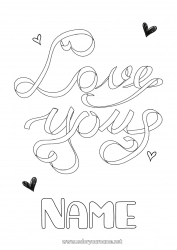 Love
you
NAME
www.coloryourname.net